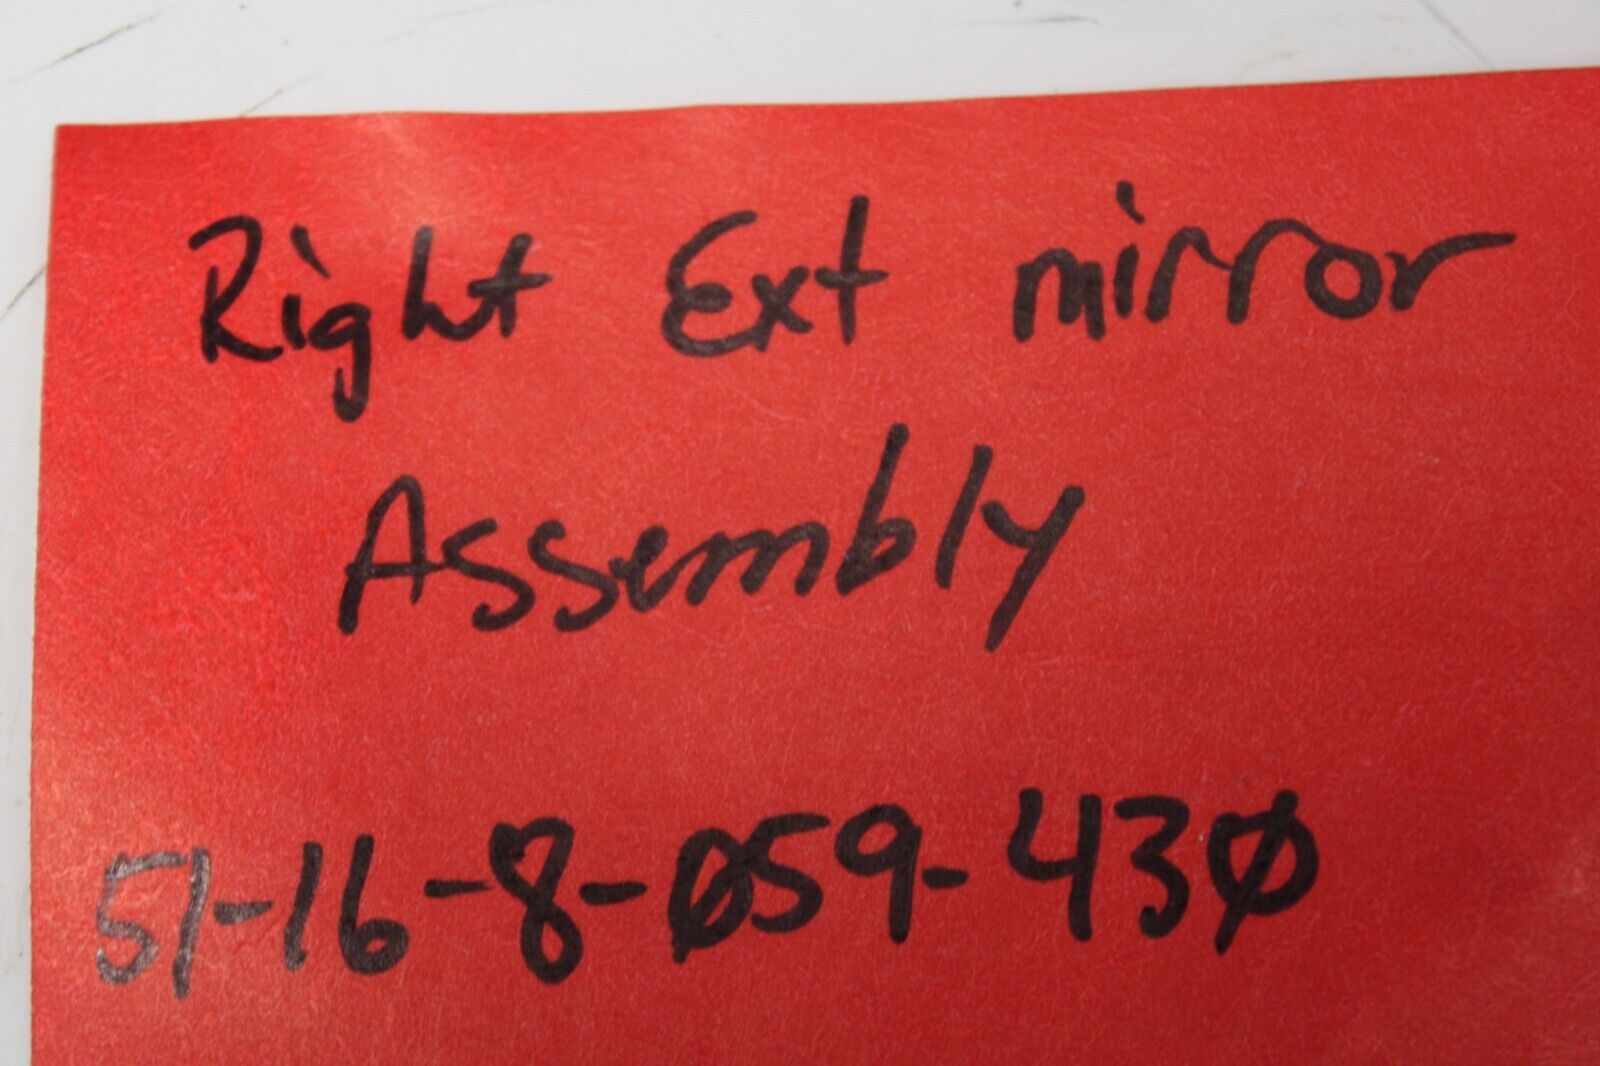 Right Ext mirror
Assembly
51-16-8-059-430